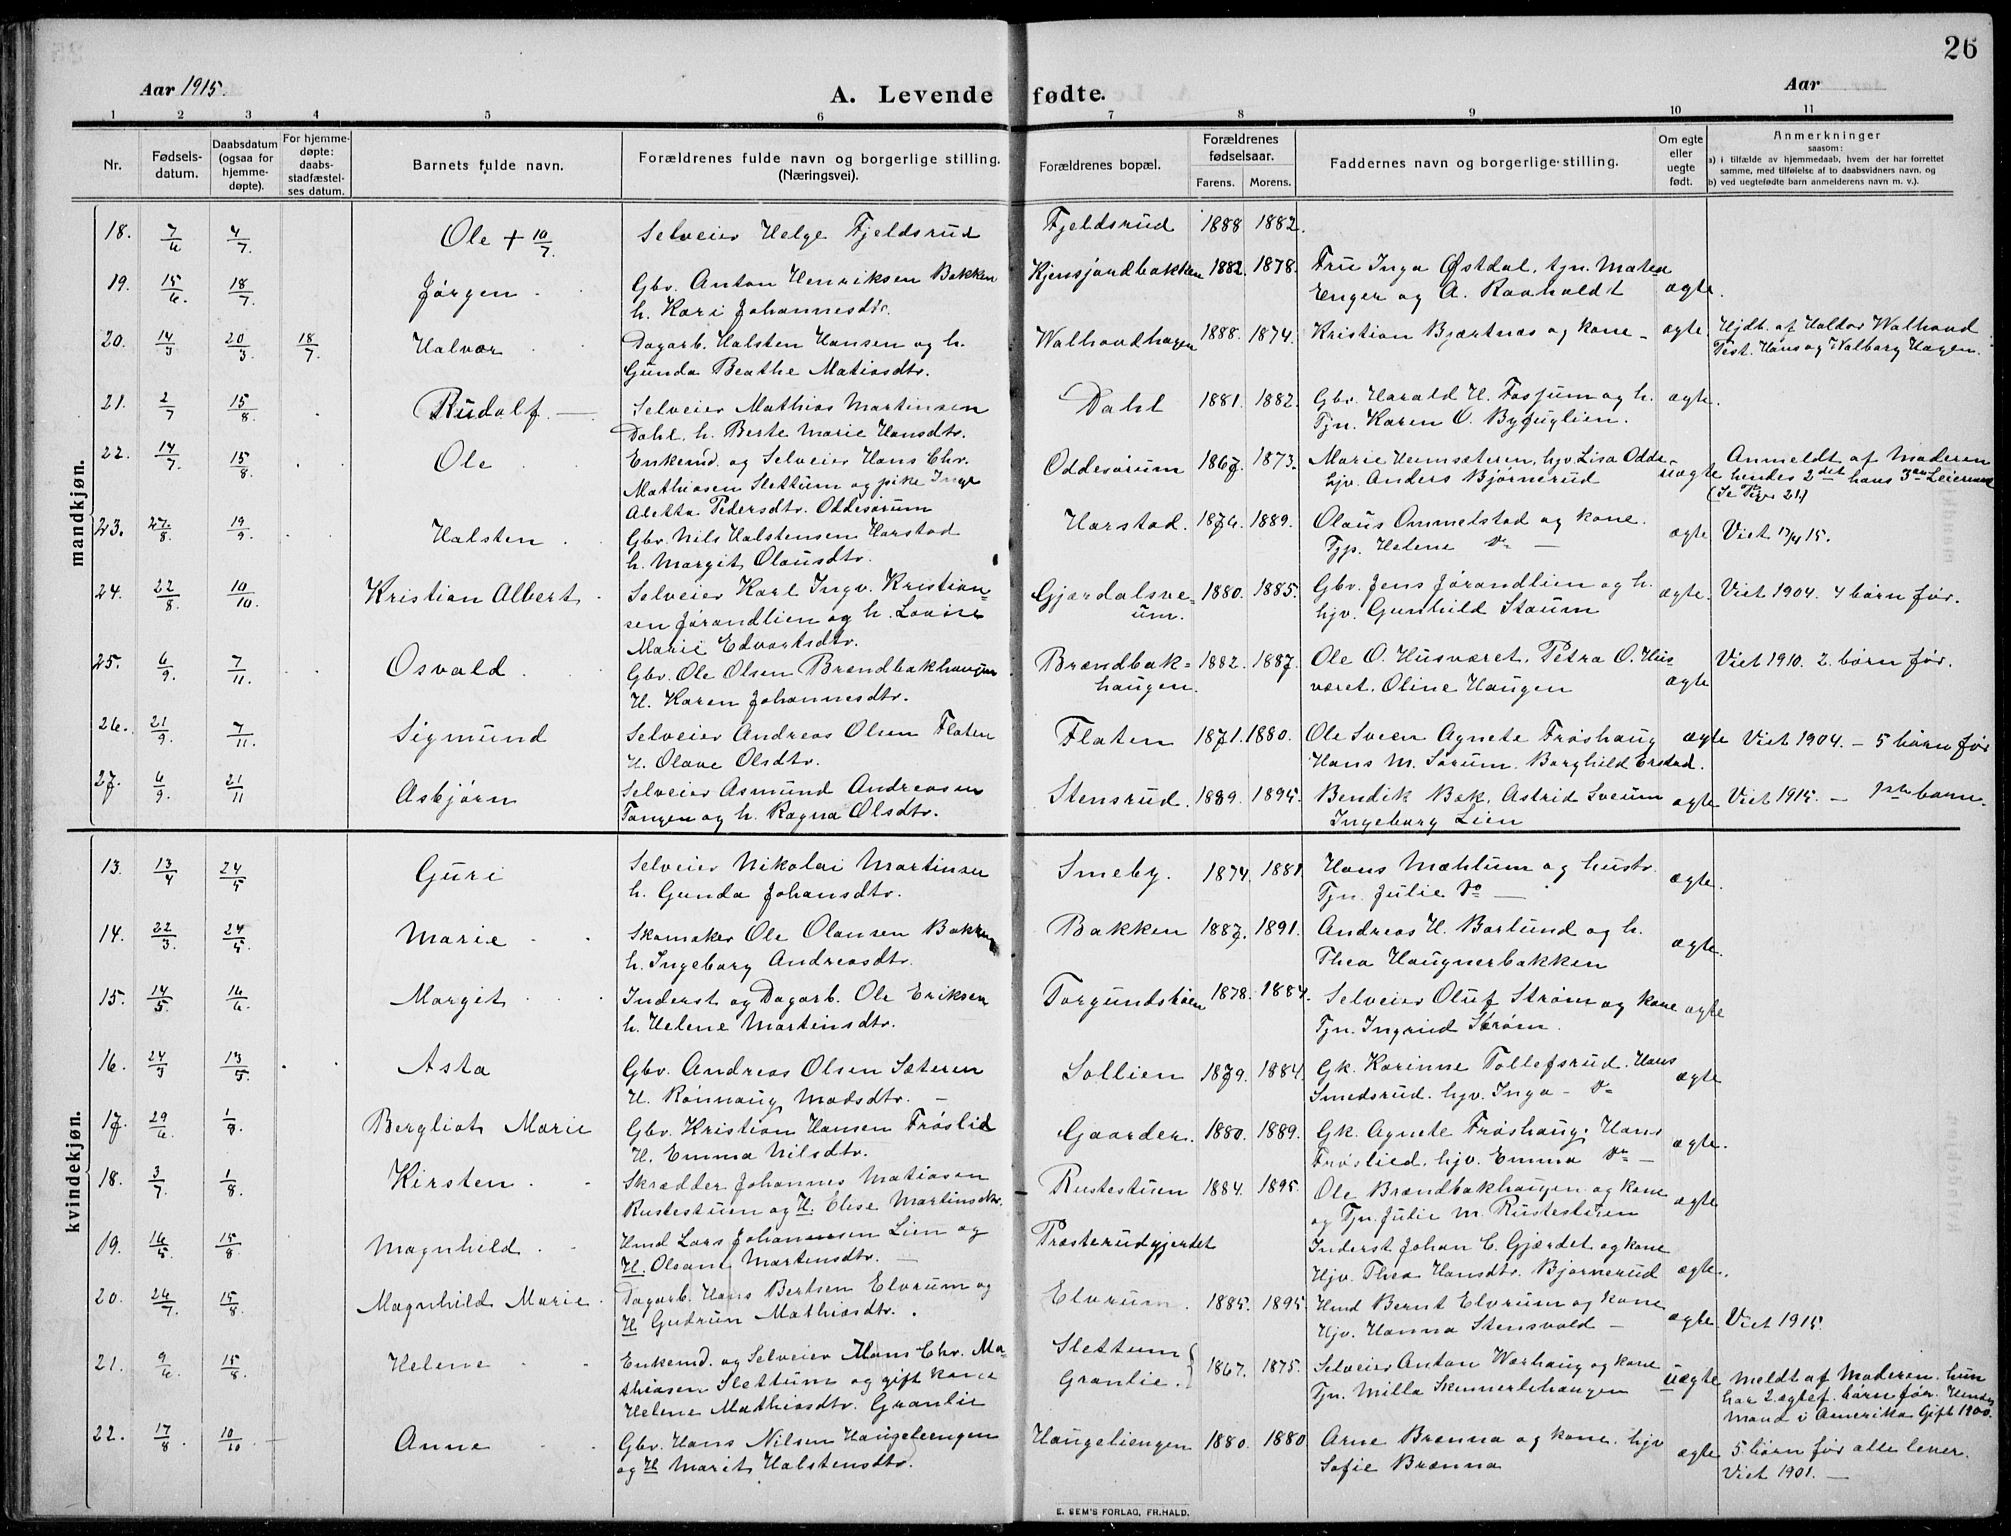 26
Aar 1915.
A. Levende fødte.
Aar
1 2 3 4 5 6 7 8 9 10 11
Nr.
Fødsels-
datum.
Daabsdatum
(ogsaa for
hjemme-
døpte).
For hjemme-
døpte:
daabs-
stadfæstel-
ses datum.
Barnets fulde navn.
Forældrenes fulde navn og borgerlige stilling.
(Næringsvei).
Forældrenes bopæl.
Forældrenes
fødselsaar.
Farens. Morens.
Faddernes navn og borgerlige stilling.
Om egte
eller
uegte
født.
Anmerkninger
saasom:
a) i tilfælde av hjemmedaab, hvem der har forrettet
samme, med tilføielse af to daabsvidners navn, og
b) ved uegtefødte barn anmelderens navn m. v.).
mandkjøn.
18. 7/6 4/7 Ole + 10/7. Selveier Helge Fjeldsrud Fjeldsrud 1888 1882.
19. 15/6. 18/7. Jørgen Gbr. Anton Henriksen Bakken Kjensjordbakken 1882. 1878. Fru Inga Østdal, tjn.
h. Kari Johannesdtr. Enger og A. Raaholdt ægte.
20. 14/3 20/3 18/7. Halvor Dagarb. Halsten Hansen og h. Walhovdhagen 1888. 1874. Kristian Bjærtnæs og kone ægte Hjdb. af Haldor Walhovd
Gunda Beathe Matiasdtr. Test. Hans og Walborg Hagen.
21. 2/7 15/8 Rudolf. Selveier Mathias Martinsen Dahl 1881. 1882. Gbr. Harald H. Fossum og h. ægte.
Dahl. h. Berte Marie Hansdtr. Tjn. Karen O. Byfuglien.
22. 14/7. 15/8 Ole Enkemd. og Selveier Hans Chr. Oddesørum 1867. 1873. Marie Heimsæteren, hjv. Lisa Odde uægte Anmeldt af Moderen
Mathiasen Slettum og pike Inge hjv. Anders Bjørnerud hendes 2det hans 3die Leiermaal
Aletta Pedersdtr. Oddesørum (Se Pige 21)
23. 27/8 19/9 Halsten Gbr. Nils Halstensen Harstad Harstad. 1874. 1889. Olaus Ommelstad og kone. ægte Viet 17/4 15.
h. Margit Olausdtr. Helene Do
24. 22/8. 10/10. Kristian Albert Selveier Karl Ingv. Kristian- Gjærdalsve- 1880. 1885. Gbr. Jens Jørandlien og h. ægte. Viet 1904. 4 børn før.
sen Jørandlien og h. Lovise um. hjv. Gunhild Staum
Marie Edvartsdtr.
25. 6/9. 7/11. Osvald Gbr. Ole Olsen Brændbakhaugen Brændbak- 1882. 1887. Ole O. Husværet, Petra O. Hus ægte Viet 1910. 2. børn før.
H. Karen Johannesdtr. haugen. været. Oline Haugen
26. 21/9. 7/11. Sigmund Selveier Andreas Olsen Flaten Flaten 1871. 1880. Ole Sveen Agnete Frøshaug ægte Viet 1904. – 5 børn før
H. Olave Olsdtr. Hans M. Sørum. Borghild Erstad.
27. 6/9. 21/11 Asbjørn Selveier Asmund Andreasen Stensrud. 1889. 1895. Bendik Bak. Astrid Sveum ægte Viet 1915. – 1ste barn.
Tangen og h. Ragna Olsdtr. Ingeborg Lien
kvindekjøn.
13. 13/4 24/5 Guri Selveier Nikolai Martinsen Smeby. 1874. 1881 Hans Mæhlum og hustr. ægte.
h. Gunda Johansdtr. Tjn. Julie Do
14. 22/3. 24/5. Marie Skomaker Ole Olausen Bakken Bakken 1887. 1891. Andreas H. Barlund og h. ægte.
h. Ingeborg Andreasdtr. Thea Haugnerbakken
15. 14/5. 14/6. Margit Inderst og Dagarb. Ole Eriksen 1878. 1884. Selveier Oluf Strøm og kone ægte
h. Helene Martinsdtr. Tjn. Ingrid Strøm.
16. 24/3 13/5. Asta Gbr. Andreas Olsen Sæteren Sollien 1879. 1884. Gk. Karinne Tollefsrud. Hans ægte
H. Rønnaug Madsdtr. Smedsrud. hjv. Inga – Do
17. 29/6. 1/8 Bergliot Marie Gbr. Kristian Hansen Frøslid Gaarder. 1880. 1889. Gk. Agnete Frøshaug. Hans ægte.
H. Emma Nilsdtr. Frøslied. hjv. Emma Do
18. 3/7. 1/8. Kirsten Skrædder Johannes Matiasen Rustestuen 1884. 1895. Ole Brændbakhaugen og kone ægte
Rustestuen og H. Elise Martinsdtr. og Tjn. Julie M. Rustestuen
19. 16/5 15/8 Magnhild Hmd Lars Johannesen Lien og Præsterudgjerdet Inderst Johan C. Gjærdet og kone ægte.
H. Olsane Martensdtr. Hjv. Thea Hansdtr. Bjørnerud
20. 24/7. 15/8. Magnhild Marie Dagarb. Hans Bertsen Elvrum og Elvrum. 1885. 1895 Hmd Bernt Elvrum og kone ægte Viet 1915.
H Gudrun Mathiasdtr. Hjv. Hanna Stensvold
21. 9/6 15/8. Helene Enkemd. og Selveier Hans Chr. Ma- Slettum 1867. 1875. Selveier Anton Warhaug og kone uægte Meldt af Moderen. hun
thiasen Slettum og gift kone Granlie. Tjn. Milla Skinnerlihaugen har 2 ægtef. børn før. Hendes
Helene Mathiasdtr. Granlie Mand i Amerika Gift 1900.
22. 17/8. 10/10 Anne Gbr. Hans Nilsen Haugeliengen Haugeliengen 1880. 1880 Arne Brenna og kone. hjv ægte 5 børn før alle lever.
og H Marit Halstensdtr. Sofie Brænna Viet 1901. –
E. SEM'S FORLAG, FR.HALD.